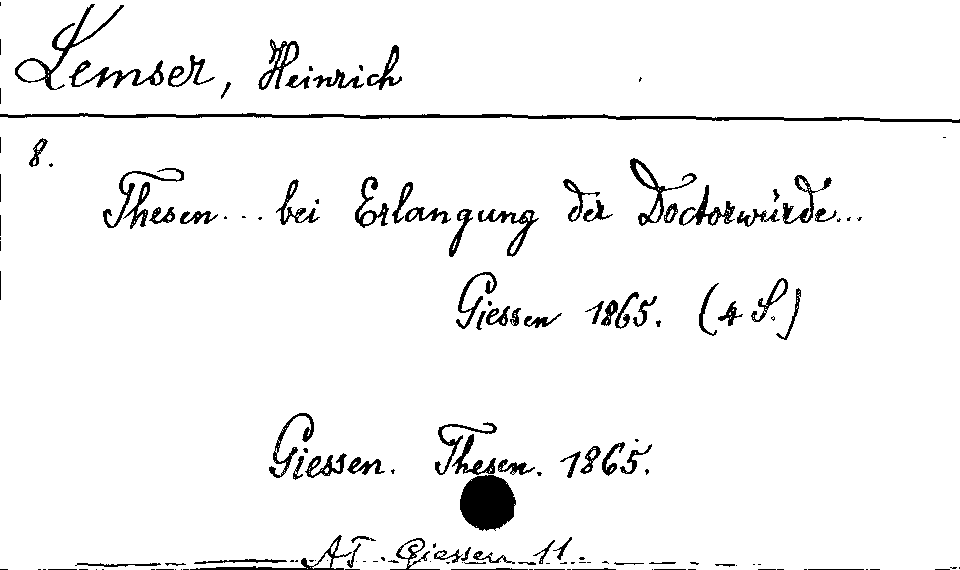 Lemser, Heinrich
8.
Thesen... bei Erlangung der Doctorwürde...
Giessen 1865. (4 S.)
Giessen. Thesen. 1865.
AT. Giessen 11.